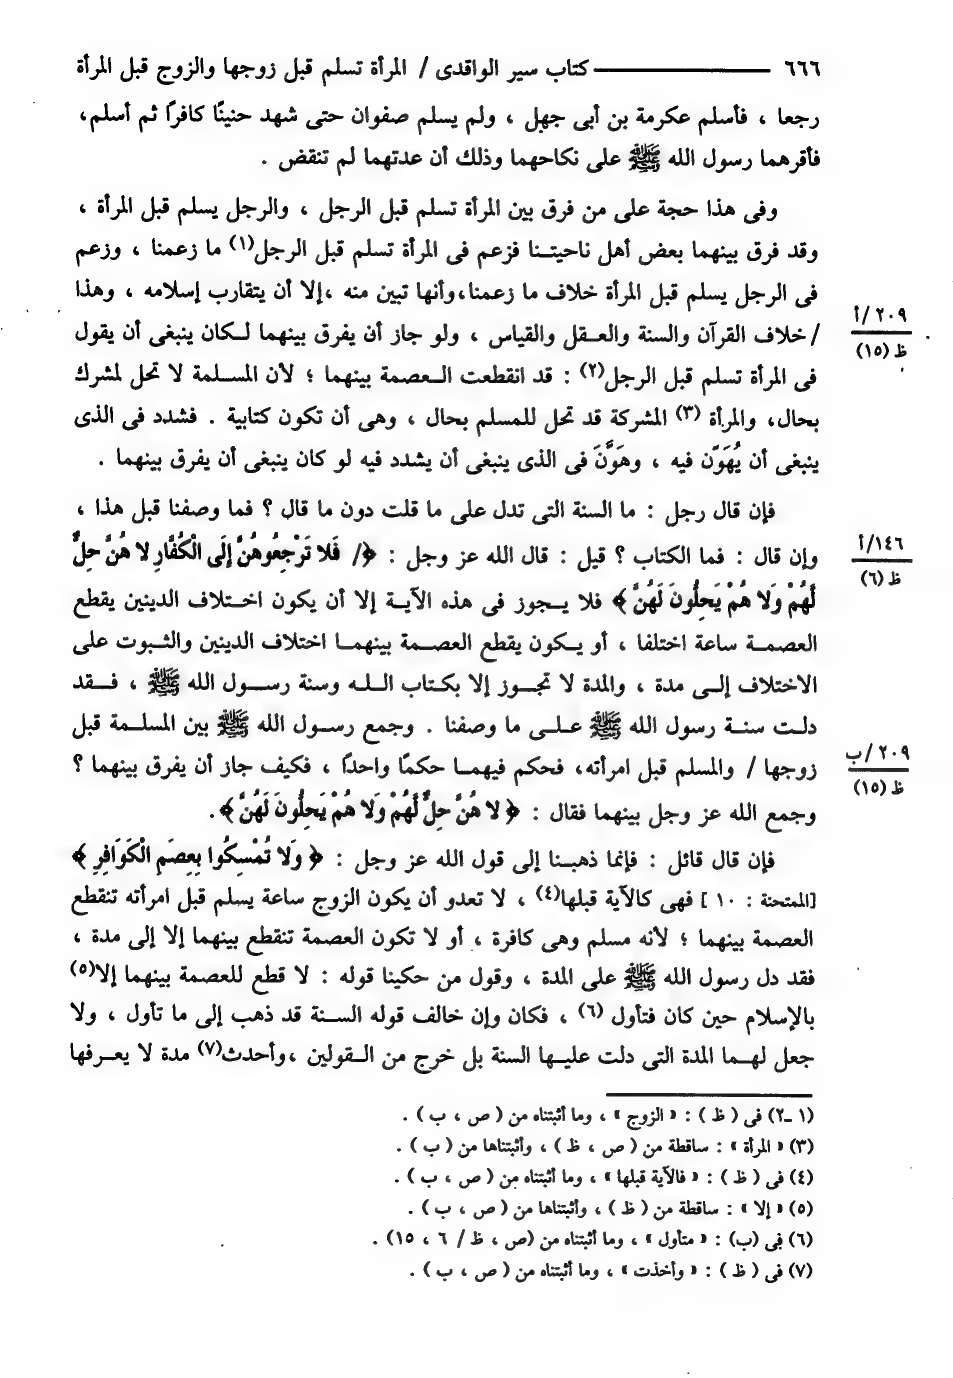 ٦٦٦ ــــــــــــ كتاب سير الواقدى / المرأة تسلم قبل زوجها والزوج قبل المرأة
رجعا ، فأسلم عكرمة بن أبى جهل ، ولم يسلم صفوان حتى شهد حنينًا كافرًا ثم أسلم،
فأقرهما رسول الله ﷺ على نكاحهما وذلك أن عدتهما لم تنقض .
وفى هذا حجة على من فرق بين المرأة تسلم قبل الرجل ، والرجل يسلم قبل المرأة ،
وقد فرق بينهما بعض أهل ناحيتـنا فزعم فى المرأة تسلم قبل الرجل(١) ما زعمنا ، وزعم
فى الرجل يسلم قبل المرأة خلاف ما زعمنا،وأنها تبين منه ،إلا أن يتقارب إسلامه ، وهذا
٢٠٩/أ
ظ (١٥)
/خلاف القرآن والسنة والعـقل والقياس ، ولو جاز أن يفرق بينهما لـكان ينبغى أن يقول
فى المرأة تسلم قبل الرجل(٢) : قد انقطعت الـعصمة بينهما ؛ لأن المسـلمة لا تحل لمشرك
بحال، والمرأة (٣) المشركة قد تحل للمسلم بحال ، وهى أن تكون كتابية . فشدد فى الذى
ينبغى أن يُهَوِّن فيه ، وهَوَّنَ فى الذى ينبغى أن يشدد فيه لو كان ينبغى أن يفرق بينهما .
فإن قال رجل : ما السنة التى تدل على ما قلت دون ما قال ؟ فما وصفنا قبل هذا ،
١٤٦/أ
ظ (٦)
وإن قال : فما الكتاب ؟ قيل : قال الله عز وجل : ﴿/ فَلا تَرْجِعُوهُنَّ إِلَى الْكُفَّارِ لا هُنَّ حِلٌّ
لَّهُمْ وَلا هُمْ يَحِلُّونَ لَهُنَّ ﴾ فلا يـجوز فى هذه الآيـة إلا أن يكون اخـتلاف الدينين يقطع
العصمـة ساعة اختلفا ، أو يـكون يقطع العصـمة بينهمـا اختلاف الدينين والثـبوت على
الاختلاف إلـى مدة ، والمدة لا تجـوز إلا بكـتاب اللـه وسنة رسـول الله ﷺ ، فـقد
دلـت سنـة رسول الله ﷺ علـى ما وصفنا . وجمع رسـول الله ﷺ بين المسلـمة قبل
٢٠٩/ب
ظ (١٥)
زوجها / والمسلم قبل امرأته، فحكم فيهمـا حكمًا واحدًا ، فكيف جاز أن يفرق بينهما ؟
وجمع الله عز وجل بينهما فقال : ﴿ لا هُنَّ حِلٌّ لَّهُمْ وَلا هُمْ يَحِلُّونَ لَهُنَّ ﴾.
فإن قال قائل : فإنما ذهبـنا إلى قول الله عز وجل : ﴿ وَلا تُمْسِكُوا بِعِصَمِ الْكَوَافِرِ ﴾
[الممتحنة : ١٠ ] فهى كالآية قبلها(٤) ، لا تعدو أن يكون الزوج ساعة يسلم قبل امرأته تنقطع
العصمة بينهما ؛ لأنه مسلم وهى كافرة ، أو لا تكون العصمة تنقطع بينهما إلا إلى مدة ،
فقد دل رسول الله ﷺ على المدة ، وقول من حكينا قوله : لا قطع للعصمة بينهما إلا(٥)
بالإسلام حين كان فتأول (٦) ، فكان وإن خالف قوله السـنة قد ذهب إلى ما تأول ، ولا
جعل لهـما المدة التى دلت عليـها السنة بل خرج من الـقولين ،وأحدث(٧) مدة لا يعـرفها
(١ـ٢) فى ( ظ ) : « الزوج » ، وما أثبتناه من ( ص ، ب ) .
(٣) « المرأة » : ساقطة من ( ص ، ظ ) ، وأثبتناها من ( ب ) .
(٤) فى ( ظ ) : « فالآية قبلها » ، وما أثبتناه من ( ص ، ب ) .
(٥) « إلا » : ساقطة من ( ظ ) ، وأثبتناها من ( ص ، ب ) .
(٦) فى (ب) : « متأول » ، وما أثبتناه من (ص ، ظ / ٦ ، ١٥) .
(٧) فى ( ظ ) : « وأخذت » ، وما أثبتناه من ( ص ، ب ) .